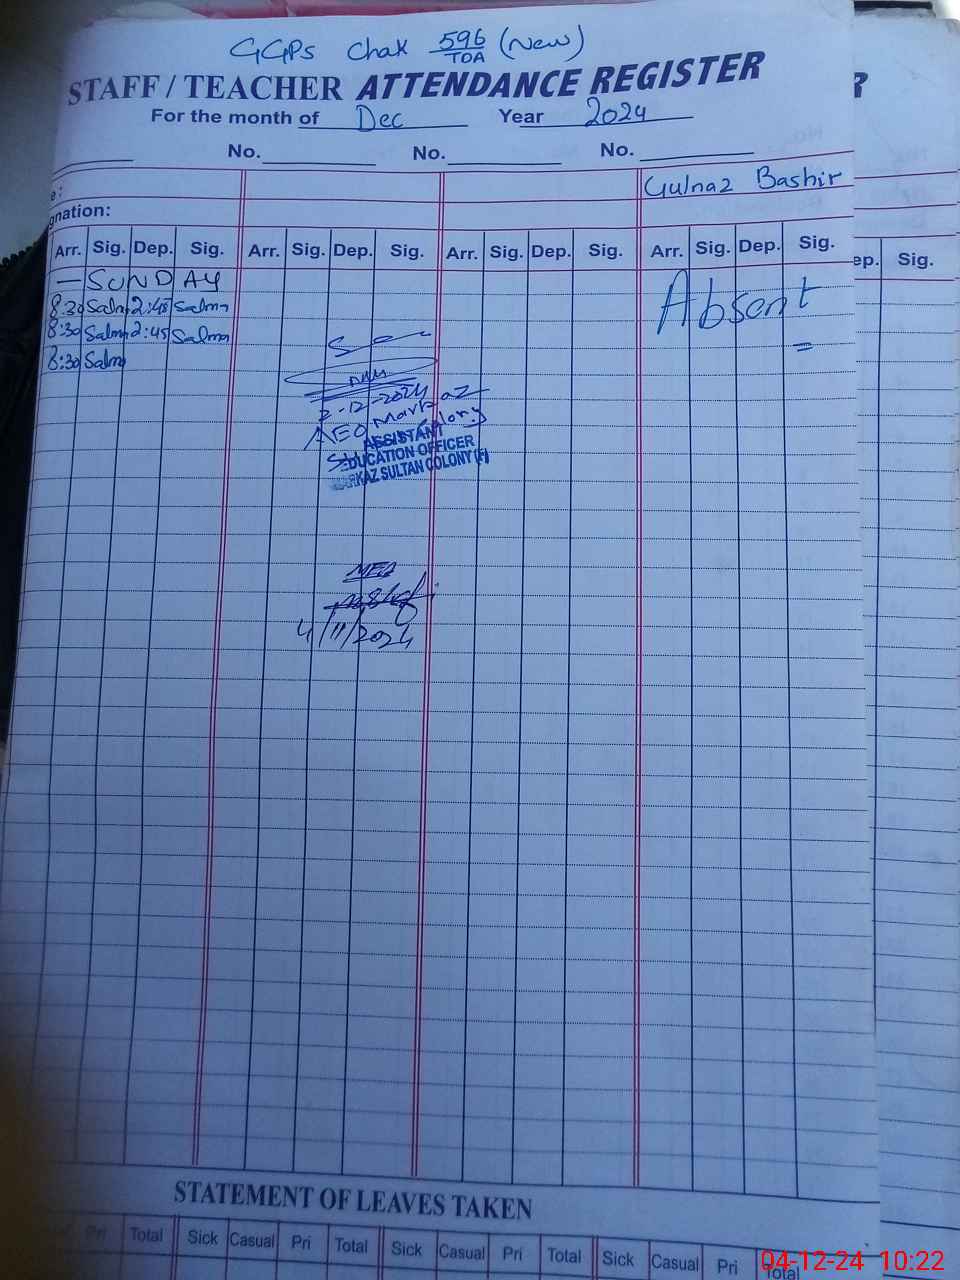 GGPS Chak 596/TDA (New)
STAFF / TEACHER ATTENDANCE REGISTER
For the month of Dec Year 2024
No. No. No.
e: Gulnaz Bashir
gnation:
Arr. Sig. Dep. Sig. Arr. Sig. Dep. Sig. Arr. Sig. Dep. Sig. Arr. Sig. Dep. Sig. ep. Sig.
— SUNDAY
8:30 Salm 2:45 Salma
8:30 Salma 2:45 Salma
8:30 Salma
Absent
2-12-2024
AEO Markaz
Colony
ASSISTANT
EDUCATION OFFICER
MARKAZ SULTAN COLONY (F)
MEA
4/11/2024
STATEMENT OF LEAVES TAKEN
Pri Total Sick Casual Pri Total Sick Casual Pri Total Sick Casual Pri Total
04-12-24 10:22